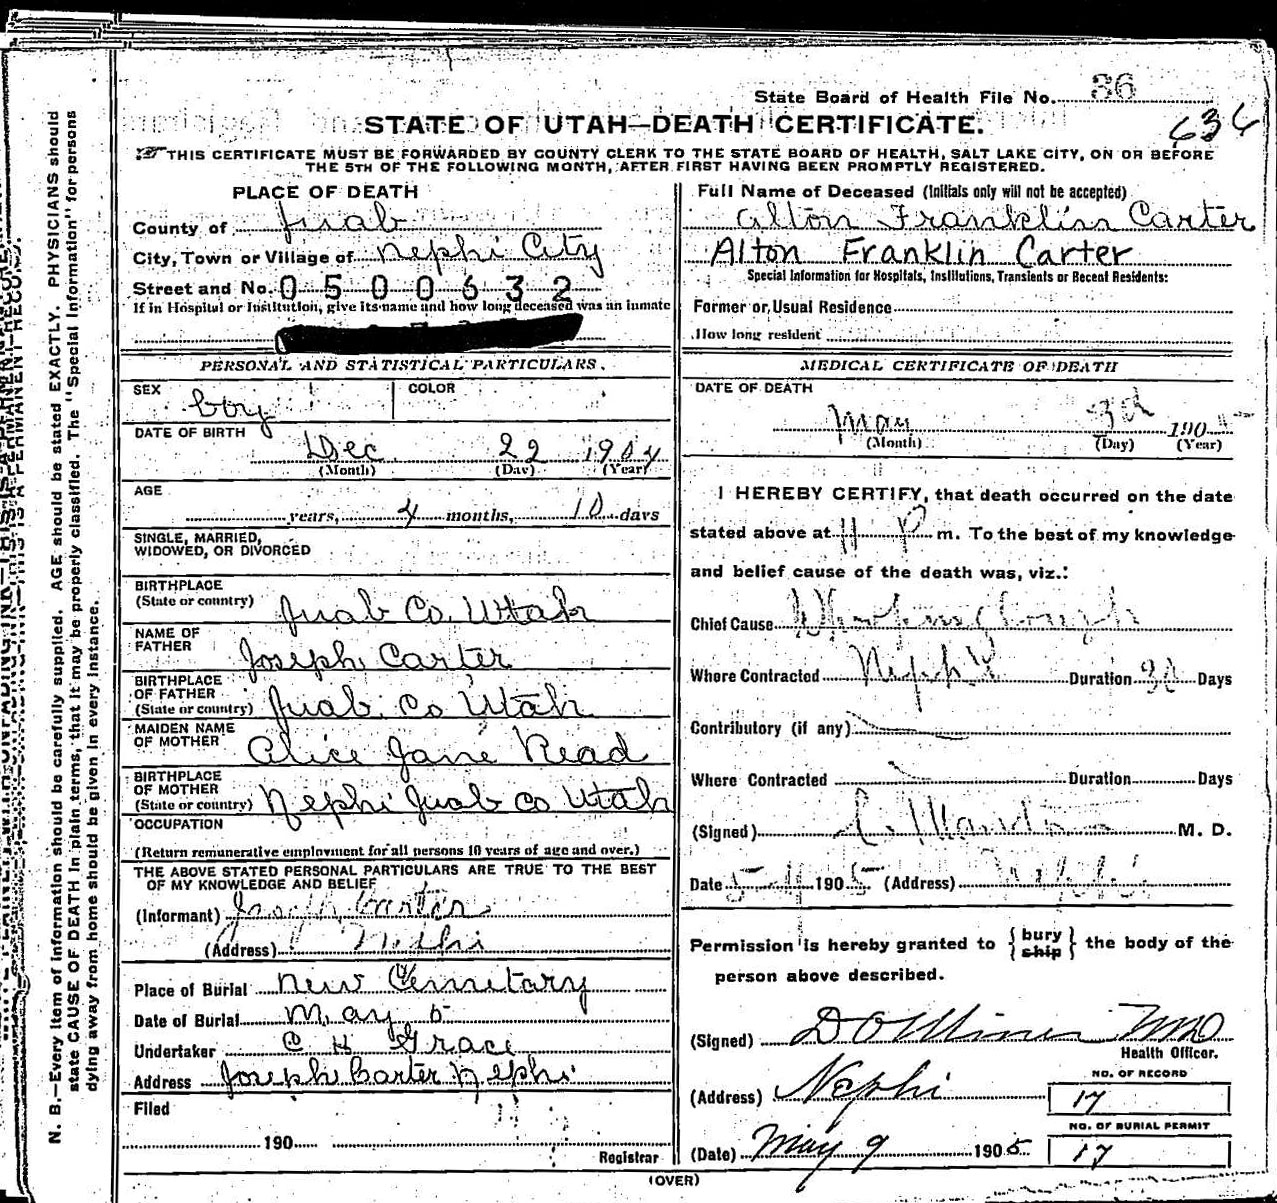 State Board of Health File No. 36
636
STATE OF UTAH—DEATH CERTIFICATE.
THIS CERTIFICATE MUST BE FORWARDED BY COUNTY CLERK TO THE STATE BOARD OF HEALTH, SALT LAKE CITY, ON OR BEFORE
THE 5TH OF THE FOLLOWING MONTH, AFTER FIRST HAVING BEEN PROMPTLY REGISTERED.
PLACE OF DEATH
County of Juab
City, Town or Village of Nephi City
Street and No. 0500632
If in Hospital or Institution, give its name and how long deceased was an inmate
PERSONAL AND STATISTICAL PARTICULARS.
SEX boy COLOR
DATE OF BIRTH
Dec 22 1904
(Month) (Day) (Year)
AGE
years, 4 months, 10 days
SINGLE, MARRIED,
WIDOWED, OR DIVORCED
BIRTHPLACE
(State or country) Juab Co. Utah
NAME OF
FATHER Joseph Carter
BIRTHPLACE
OF FATHER
(State or country) Juab Co Utah
MAIDEN NAME
OF MOTHER Alice Jane Read
BIRTHPLACE
OF MOTHER
(State or country) Nephi Juab Co Utah
OCCUPATION
(Return remunerative employment for all persons 10 years of age and over.)
THE ABOVE STATED PERSONAL PARTICULARS ARE TRUE TO THE BEST
OF MY KNOWLEDGE AND BELIEF
(Informant) Joseph Carter
(Address) Nephi
Place of Burial New Cemetary
Date of Burial May 5
Undertaker C H Grace
Address Joseph Carter Nephi
Filed
190
Registrar
Full Name of Deceased (Initials only will not be accepted)
Alton Franklin Carter
Alton Franklin Carter
Special Information for Hospitals, Institutions, Transients or Recent Residents:
Former or Usual Residence
How long resident
MEDICAL CERTIFICATE OF DEATH
DATE OF DEATH
May 3d 1905
(Month) (Day) (Year)
I HEREBY CERTIFY, that death occurred on the date
stated above at 11 P m. To the best of my knowledge
and belief cause of the death was, viz.:
Chief Cause Whooping Cough
Where Contracted Nephi Duration 30 Days
Contributory (if any)
Where Contracted Duration Days
(Signed) M. D.
Date 5-4 1905 (Address) Nephi
Permission is hereby granted to { bury ship } the body of the
person above described.
(Signed) D O Miner MD
Health Officer.
NO. OF RECORD
(Address) Nephi 17
NO. OF BURIAL PERMIT
(Date) May 9 1905 17
(OVER)
N. B.—Every item of information should be carefully supplied. AGE should be stated EXACTLY. PHYSICIANS should
state CAUSE OF DEATH in plain terms, that it may be properly classified. The "Special Information" for persons
dying away from home should be given in every instance.